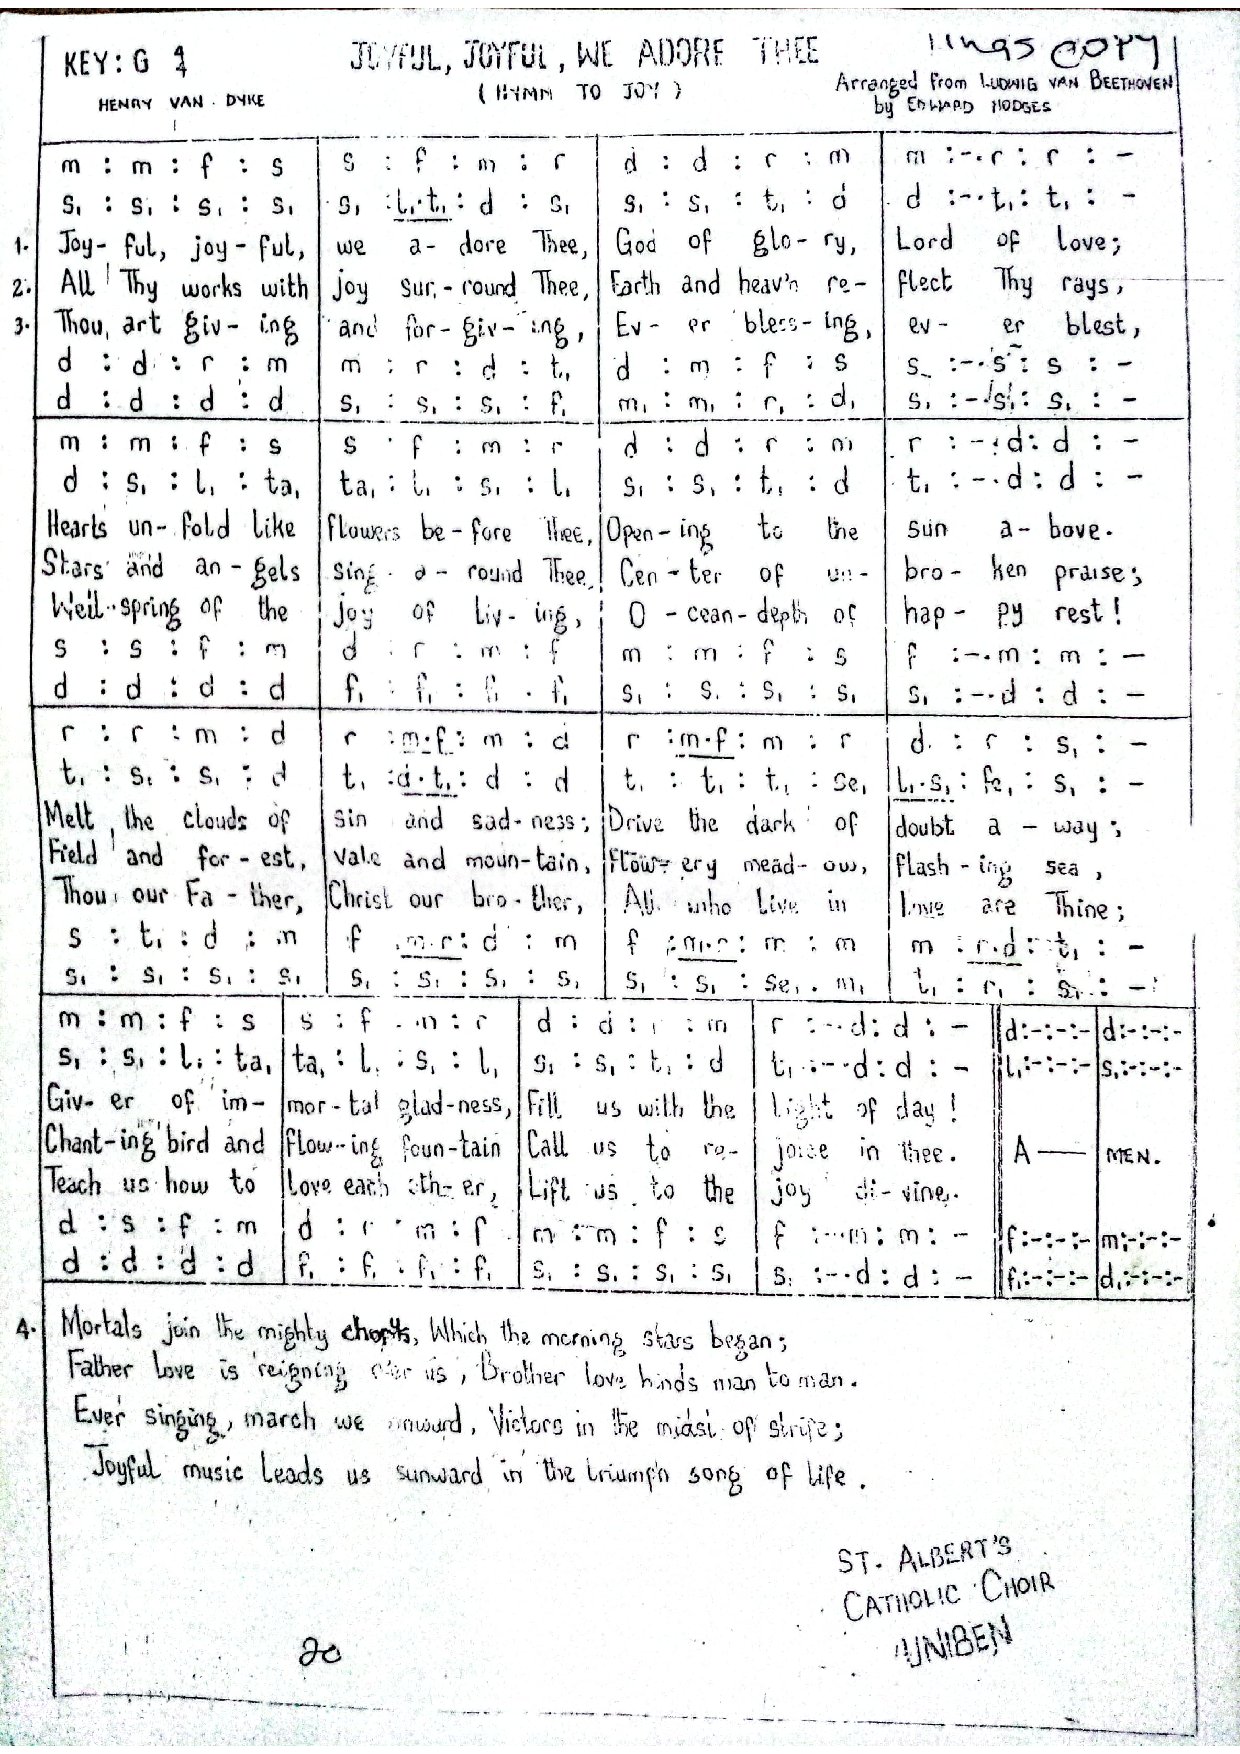 KEY: G
JOYFUL, JOYFUL, WE ADORE THEE
COPY
(HYMN TO JOY)
HENRY VAN DYKE
Arranged from LUDWIG VAN BEETHOVEN
by EDWARD HODGES
m : m : f : s | s : f : m : r | d : d : r : m | m :-. r : r : -
s₁ : s₁ : s₁ : s₁ | s₁ : l₁.t₁ : d : s₁ | s₁ : s₁ : t₁ : d | d :-. t₁ : t₁ : -
1. Joy- ful, joy- ful, | we a- dore Thee, | God of glo- ry, | Lord of love;
2. All Thy works with | joy sur- round Thee, | Earth and heav'n re- | flect Thy rays,
3. Thou, art giv- ing | and for- giv- ing, | Ev- er bless- ing, | ev- er blest,
d : d : r : m | m : r : d : t₁ | d : m : f : s | s :-. s : s : -
d : d : d : d | s₁ : s₁ : s₁ : f₁ | m₁ : m₁ : r₁ : d₁ | s₁ :-. s₁ : s₁ : -
m : m : f : s | s : f : m : r | d : d : r : m | r :-. d : d : -
d : s₁ : l₁ : ta₁ | ta₁ : l₁ : s₁ : l₁ | s₁ : s₁ : t₁ : d | t₁ :-. d : d : -
Hearts un- fold like | flowers be- fore Thee, | Open- ing to the | sun a- bove.
Stars and an- gels | sing a- round Thee | Cen- ter of un- | bro- ken praise;
Well-spring of the | joy of liv- ing, | O- cean- depth of | hap- py rest!
s : s : f : m | d : r : m : f | m : m : f : s | f :-. m : m : -
d : d : d : d | f₁ : f₁ : f₁ : f₁ | s₁ : s₁ : s₁ : s₁ | s₁ :-. d : d : -
r : r : m : d | r : m.f : m : d | r : m.f : m : r | d : r : s₁ : -
t₁ : s₁ : s₁ : d | t₁ : d.t₁ : d : d | t₁ : t₁ : t₁ : se₁ | l₁.s₁ : fe₁ : s₁ : -
Melt, the clouds of | sin and sad- ness; | Drive the dark of | doubt a- way;
Field and for- est, | vale and moun- tain, | flow- ery mead- ow, | flash- ing sea,
Thou, our Fa- ther, | Christ our bro- ther, | All who live in | love are Thine;
s : t₁ : d : m | f : m.r : d : m | f : m.r : m : m | m : r.d : t₁ : -
s₁ : s₁ : s₁ : s₁ | s₁ : s₁ : s₁ : s₁ | s₁ : s₁ : se₁ . m₁ | t₁ : r₁ : s₁ : -
m : m : f : s | s : f : m : r | d : d : r : m | r :-. d : d : - | d:-:-:- | d:-:-:-
s₁ : s₁ : l₁ : ta₁ | ta₁ : l₁ : s₁ : l₁ | s₁ : s₁ : t₁ : d | t₁ :-. d : d : - | l₁:-:-:- | s₁:-:-:-
Giv- er of im- | mor- tal glad- ness, | Fill us with the | light of day!
Chant- ing bird and | flow- ing foun- tain | Call us to re- | joice in thee. | A—— | MEN.
Teach us how to | love each oth- er, | Lift us to the | joy di- vine.
d : s : f : m | d : r : m : f | m : m : f : s | f :-. m : m : - | f:-:-:- | m:-:-:-
d : d : d : d | f₁ : f₁ : f₁ : f₁ | s₁ : s₁ : s₁ : s₁ | s₁ :-. d : d : - | f₁:-:-:- | d₁:-:-:-
4. Mortals join the mighty chorus, Which the morning stars began;
Father love is reigning o'er us, Brother love binds man to man.
Ever singing, march we onward, Victors in the midst of strife;
Joyful music leads us sunward in the triumph song of life.
ST. ALBERT'S
CATHOLIC CHOIR
UNIBEN
20